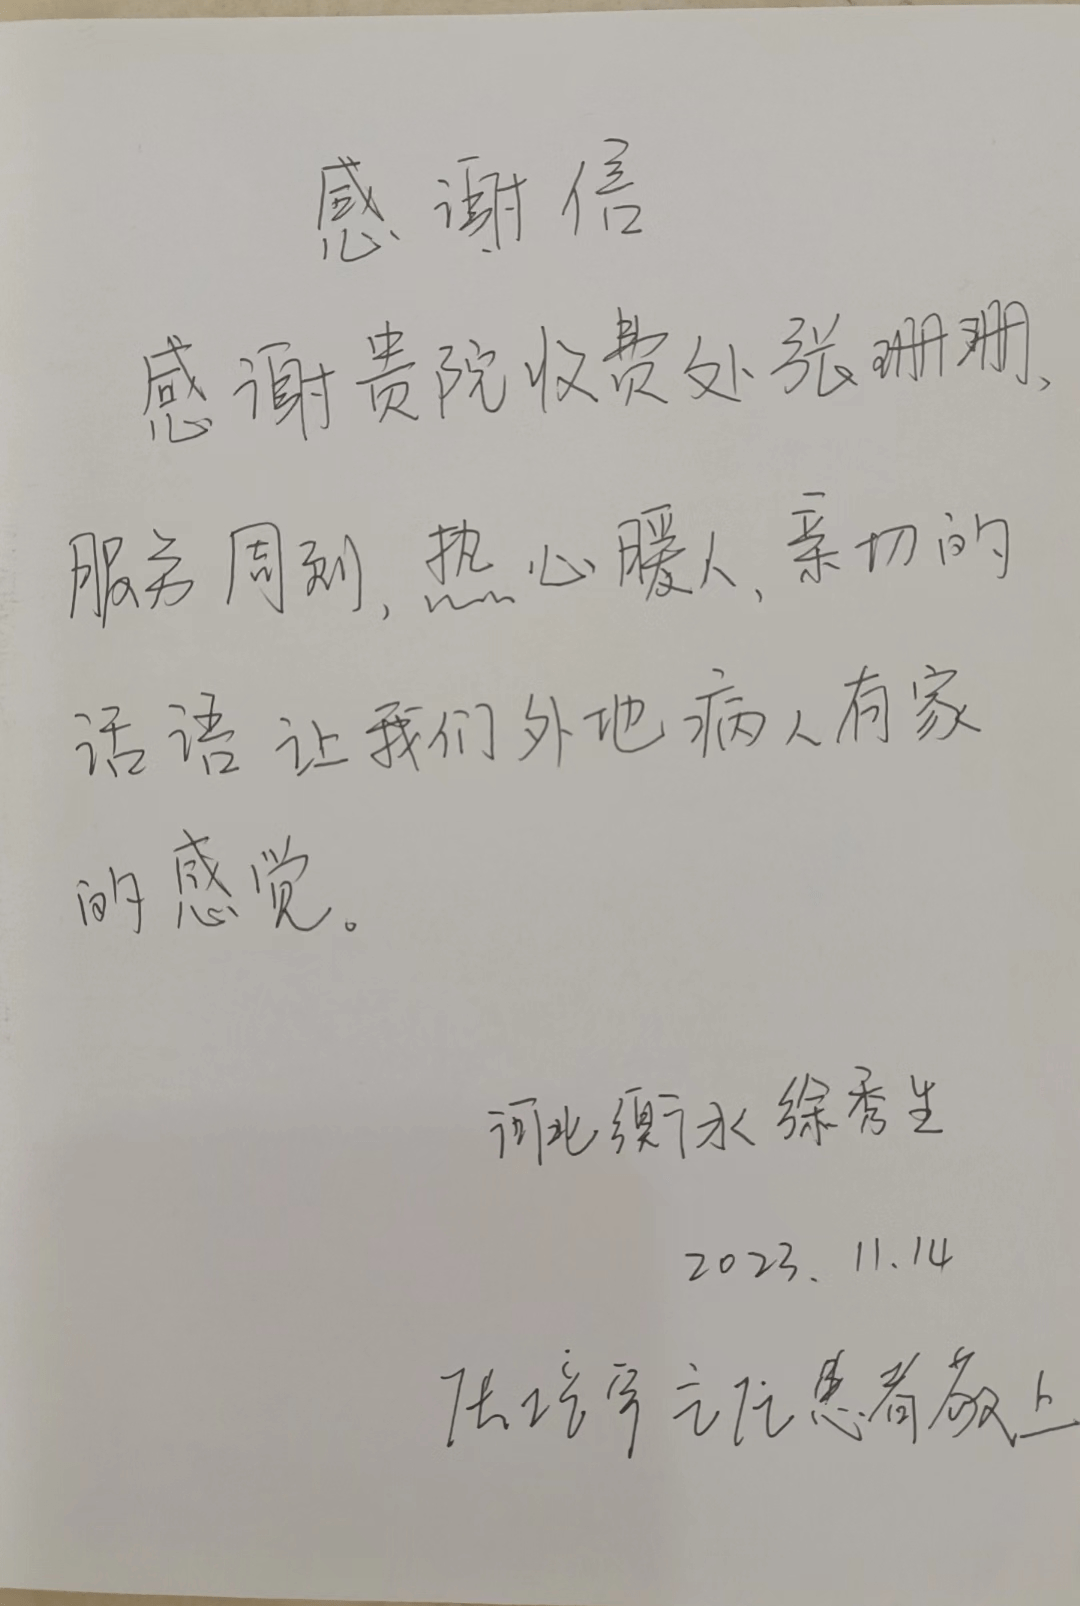 感谢信
感谢贵院收费处张珊珊、
服务周到,热心暖人、亲切的
话语让我们外地病人有家
的感觉。
河北衡水徐秀生
2023.11.14
患者敬上